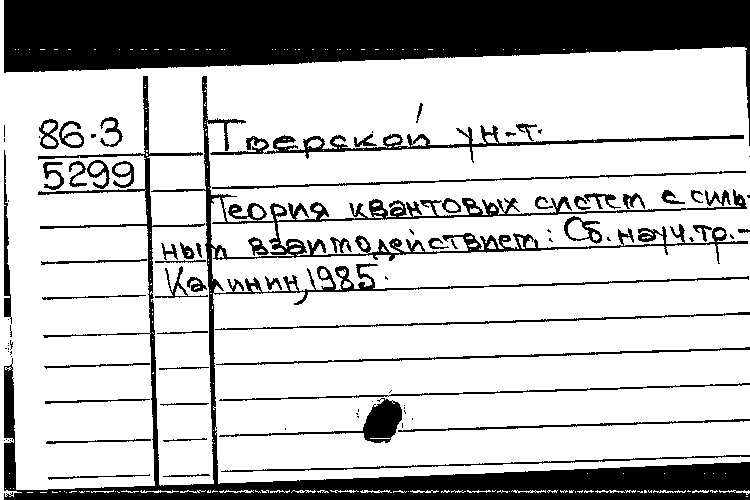 86-3
5299
Тверской ун-т.
Теория квантовых систем с силь-
ным взаимодействием: Сб. науч. тр.-
Калинин, 1985.